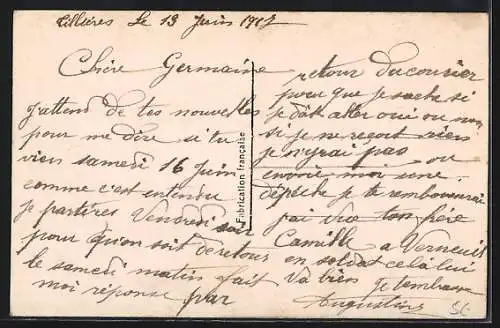 Tillières Le 13 Juin 1917
Chère Germaine
j'attend de tes nouvelles
pour me dire si tu
vien samedi 16 Juin
comme c'est entendu
je partires Vendredi soir
pour qu'on soit de retour
le samedi matin fait
moi réponse par
retour du cousier
pour que je sache si
je doit aller oui ou non
si je ne reçoit rien
je n'yrai pas ou
envoie moi une
dépêche je te rembourserai
j'ai vue ton frère
Camille a Verneuil
en soldat cela lui
va bien je t'embrasse
Augustine
Fabrication française